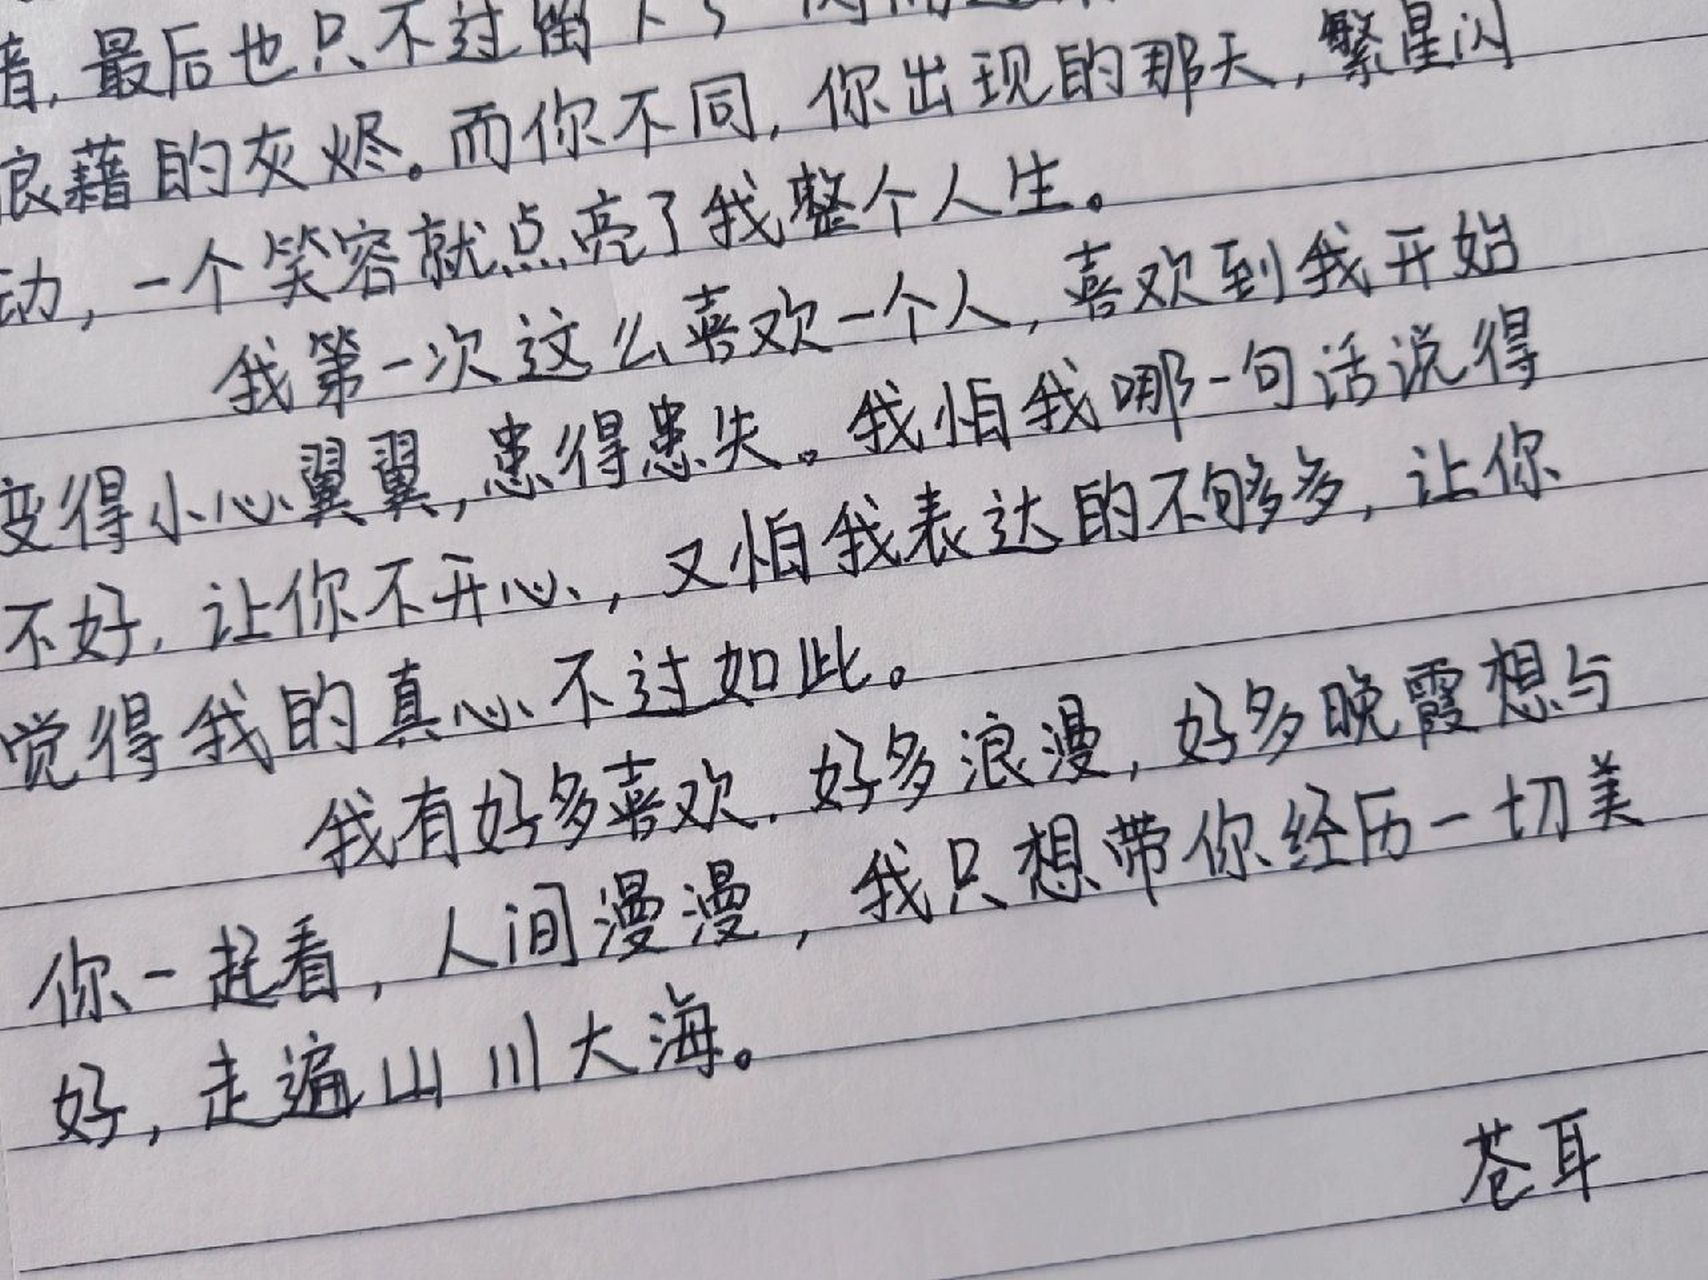 最后也只不过留下了
狼藉的灰烬。而你不同，你出现的那天，繁星闪
动，一个笑容就点亮了我整个人生。
我第一次这么喜欢一个人，喜欢到我开始
变得小心翼翼，患得患失。我怕我哪一句话说得
不好，让你不开心，又怕我表达的不够多，让你
觉得我的真心不过如此。
我有好多喜欢，好多浪漫，好多晚霞想与
你一起看，人间漫漫，我只想带你经历一切美
好，走遍山川大海。
苍耳